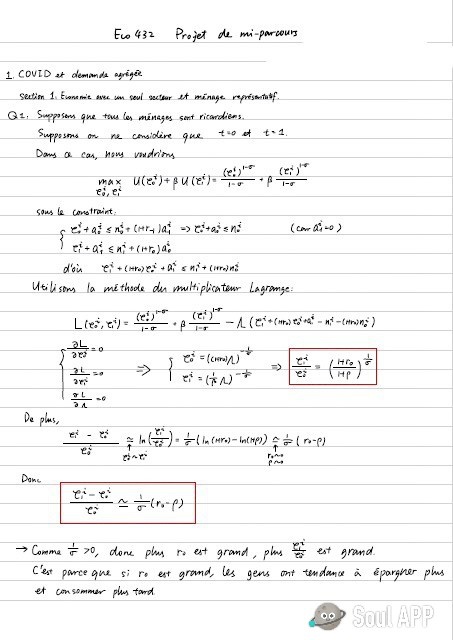 Eco 432 Projet de mi-parcours
1. COVID et demande agrégée
section 1: Économie avec un seul secteur et ménage représentatif.
Q1: Supposons que tous les ménages sont ricardiens.
Supposons on ne considère que t=0 et t=1.
Dans ce cas, nous voudrions
max_{C₀ⁱ, C₁ⁱ} U(C₀ⁱ) + β U(C₁ⁱ) = (C₀ⁱ)^{1-σ}/(1-σ) + β (C₁ⁱ)^{1-σ}/(1-σ)
sous le constraint:
{ C₀ⁱ + a₀ⁱ ≤ n₀ⁱ + (1+r₋₁)a₋₁ⁱ ⇒ C₀ⁱ + a₀ⁱ ≤ n₀ⁱ (car a₋₁ⁱ = 0)
C₁ⁱ + a₁ⁱ ≤ n₁ⁱ + (1+r₀)a₀ⁱ
d'où C₁ⁱ + (1+r₀)C₀ⁱ + a₁ⁱ ≤ n₁ⁱ + (1+r₀)n₀ⁱ
Utilisons la méthode du multiplicateur Lagrange:
L(C₀ⁱ, C₁ⁱ) = (C₀ⁱ)^{1-σ}/(1-σ) + β (C₁ⁱ)^{1-σ}/(1-σ) - Λ(C₁ⁱ + (1+r₀)C₀ⁱ + a₁ⁱ - n₁ⁱ - (1+r₀)n₀ⁱ)
{ ∂L/∂C₀ⁱ = 0
∂L/∂C₁ⁱ = 0
∂L/∂Λ = 0
⇒ { C₀ⁱ = ((1+r₀)Λ)^{-1/σ}
C₁ⁱ = (1/β Λ)^{-1/σ}
⇒ C₁ⁱ/C₀ⁱ = ((1+r₀)/(1+ρ))^{1/σ}
De plus,
(C₁ⁱ - C₀ⁱ)/C₀ⁱ ≃ ln(C₁ⁱ/C₀ⁱ) = 1/σ (ln(1+r₀) - ln(1+ρ)) ≃ 1/σ (r₀-ρ)
C₀ⁱ ~ C₁ⁱ r₀~0
ρ~0
Donc
(C₁ⁱ - C₀ⁱ)/C₀ⁱ ≃ 1/σ (r₀-ρ)
→ Comme 1/σ >0, donc plus r₀ est grand, plus C₁ⁱ/C₀ⁱ est grand.
C'est parce que si r₀ est grand, les gens ont tendance à épargner plus
et consommer plus tard
Soul APP